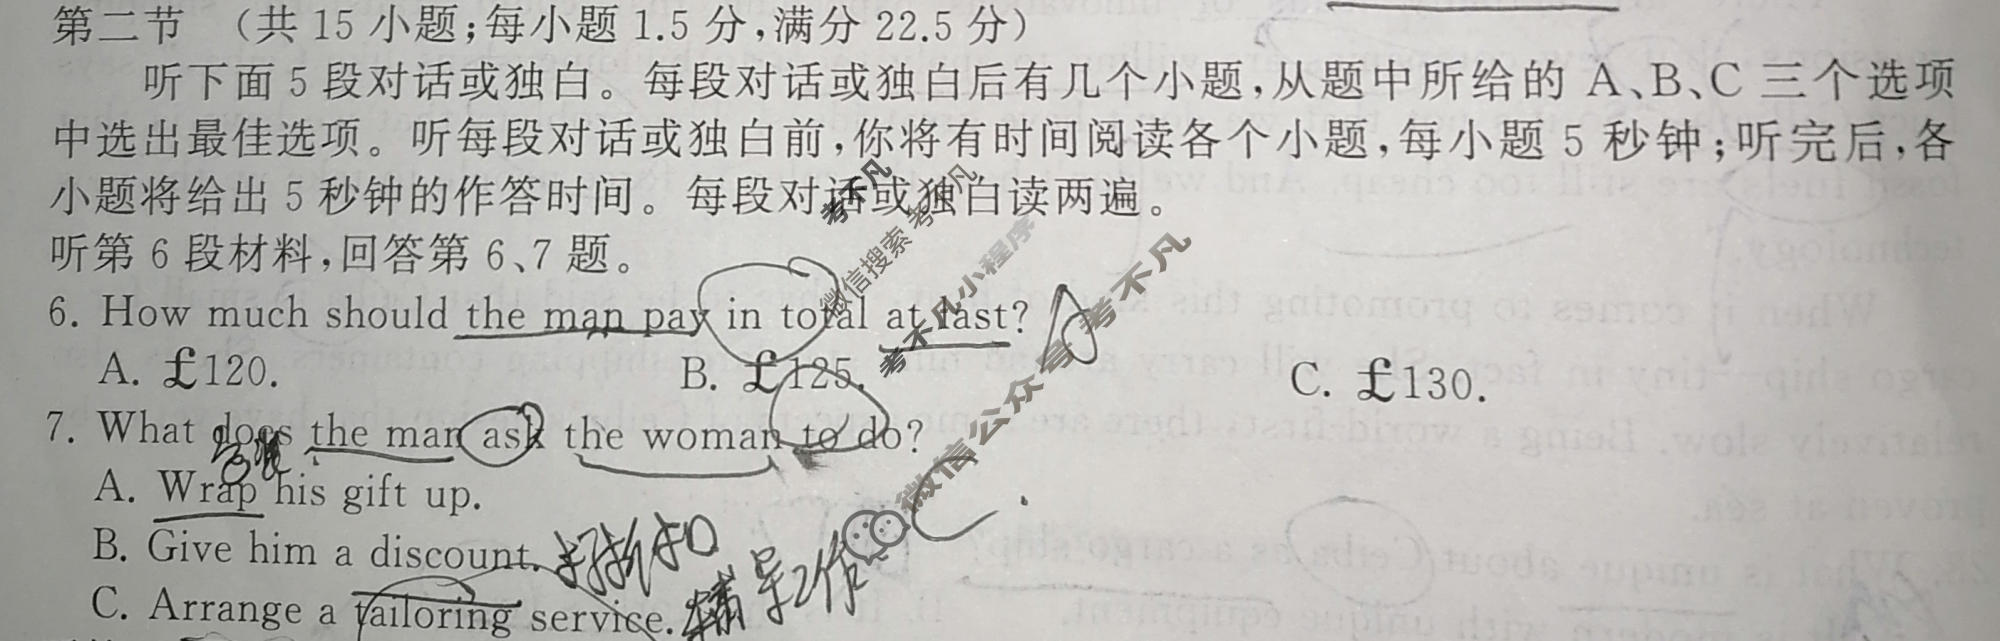 第二节 (共15小题;每小题1.5分,满分22.5分)
听下面5段对话或独白。每段对话或独白后有几个小题,从题中所给的A、B、C三个选项
中选出最佳选项。听每段对话或独白前,你将有时间阅读各个小题,每小题5秒钟;听完后,各
小题将给出5秒钟的作答时间。每段对话或独白读两遍。
听第6段材料,回答第6、7题。
6. How much should the man pay in total at last?
A. £120. B. £125. C. £130.
7. What does the man ask the woman to do?
A. Wrap his gift up.
B. Give him a discount.
C. Arrange a tailoring service. 辅导工作
考不凡
微信搜索 考不凡
考不凡小程序
微信公众号 考不凡